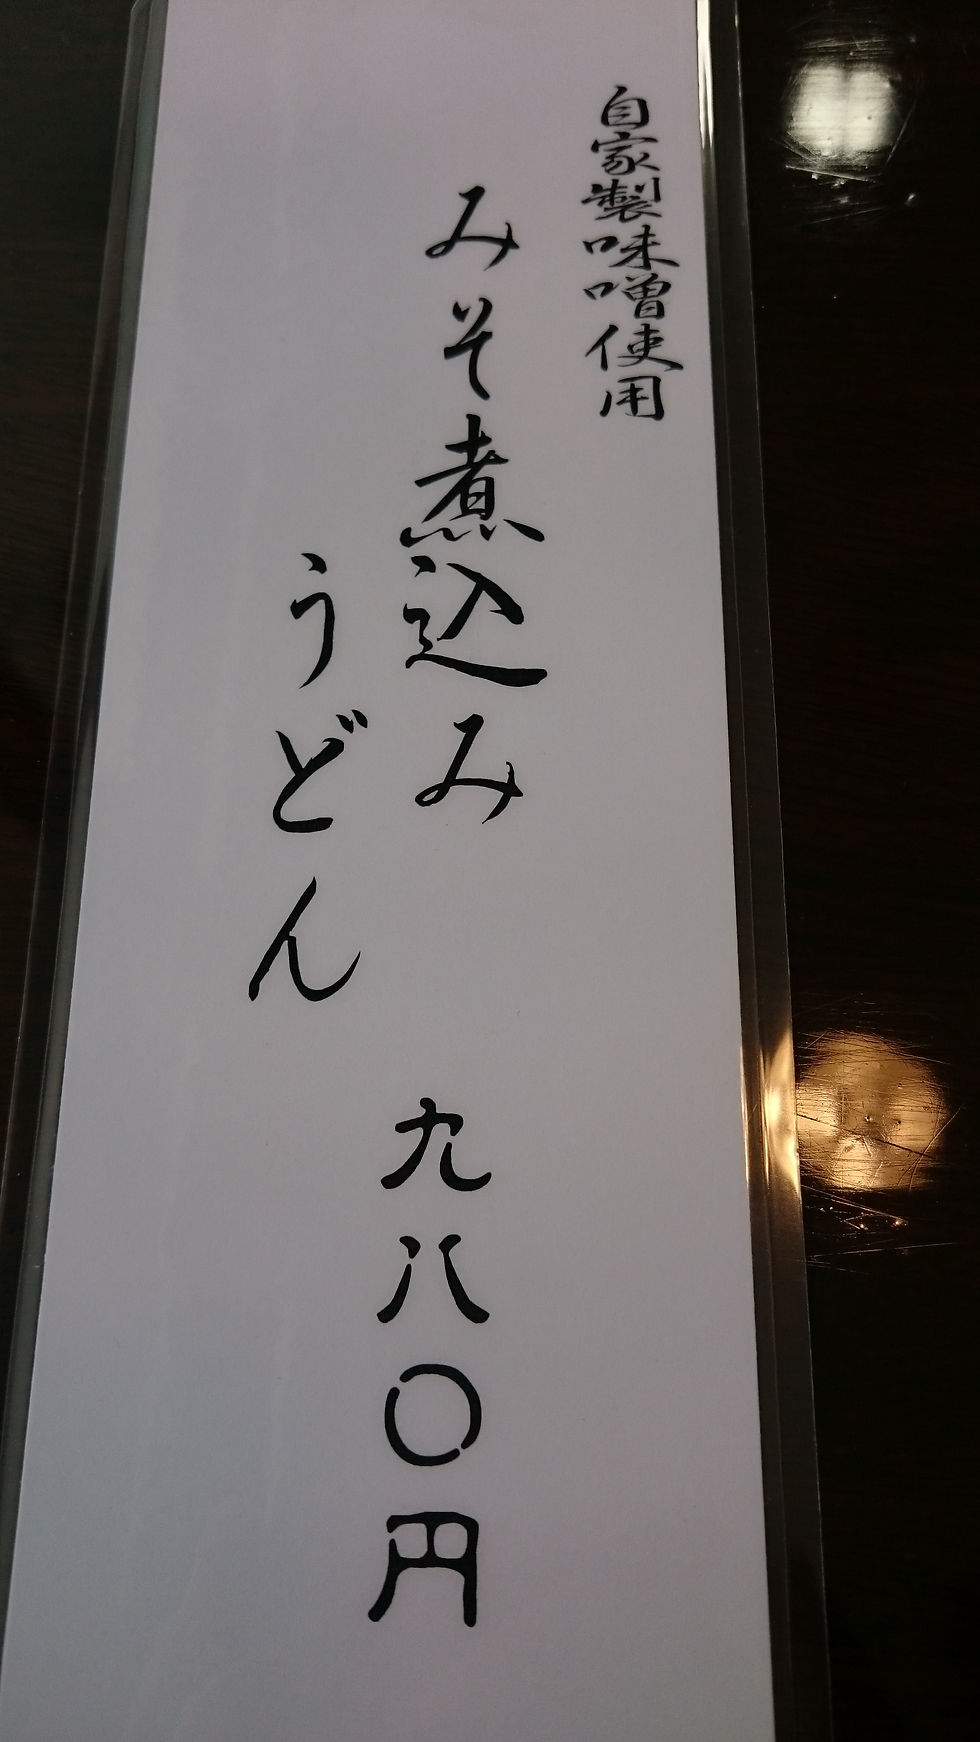 自家製味噌使用
みそ煮込み
うどん
九八〇円